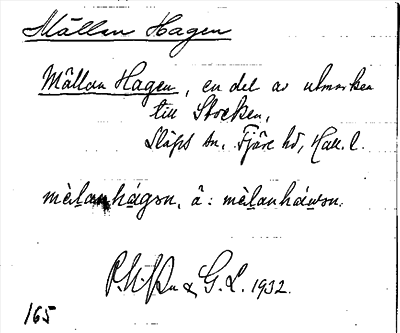 Mållan Hagen
Mållan Hagen, en del av utmarken
till Stocken,
Släps sn, Fjäre hd, Hall. l.
mèlanhágən, ä: mèlanháwən.
& G. L. 1932.
165